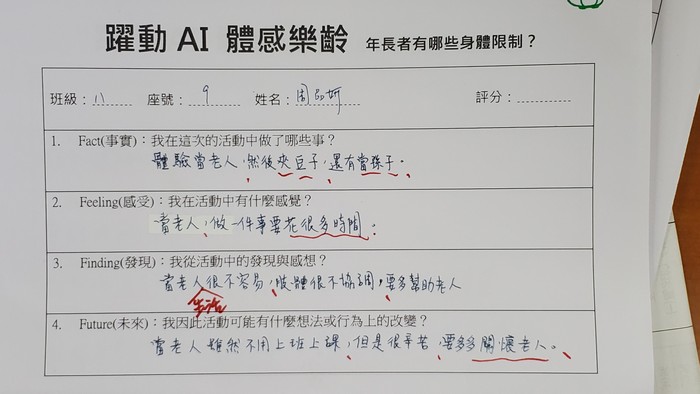 躍動 AI 體感樂齡 年長者有哪些身體限制？
班級：八 座號：9 姓名：周品妍 評分：
1. Fact(事實)：我在這次的活動中做了哪些事？
體驗當老人，然後夾豆子，還有當孫子。
2. Feeling(感受)：我在活動中有什麼感覺？
當老人，做一件事要花很多時間。
3. Finding(發現)：我從活動中的發現與感想？
當老人很不容易，肢體很不協調，要多幫助老人
生活
4. Future(未來)：我因此活動可能有什麼想法或行為上的改變？
當老人雖然不用上班上課，但是很辛苦，要多多關懷老人。